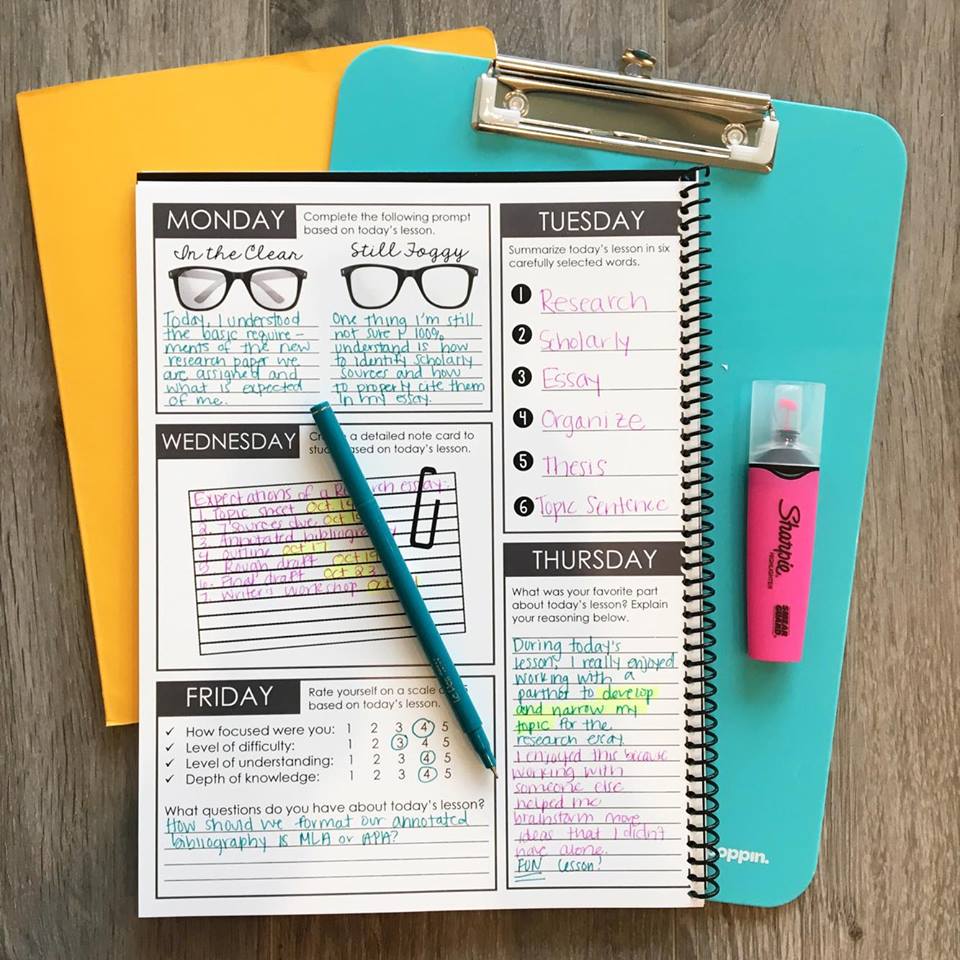 MONDAY
Complete the following prompt
based on today's lesson.
In the Clear
Still Foggy
Today, I understood
the basic require-
ments of the new
research paper we
are assigned and
what is expected
of me.
One thing I'm still
not sure I 100%
understand is how
to identify scholarly
sources and how
to properly cite them
in my essay.
TUESDAY
Summarize today's lesson in six
carefully selected words.
1 Research
2 Scholarly
3 Essay
4 Organize
5 Thesis
6 Topic Sentence
WEDNESDAY
a detailed note card to
based on today's lesson.
Expectations of a Research essay:
1. Topic sheet Oct.
2. 7 sources due Oct
3. Annotated
4. Outline Oct 17
5. Rough draft Oct 19
6. Final draft Oct 23
7. Writer's Workshop
THURSDAY
What was your favorite part
about today's lesson? Explain
your reasoning below.
During today's
lesson, I really enjoyed
working with a
partner to develop
and narrow my
topic for the
research essay
I enjoyed this because
working with
someone else
helped me
brainstorm more
ideas that I didn't
have alone.
FUN lesson!
FRIDAY
Rate yourself on a scale
based on today's lesson.
✓ How focused were you: 1 2 3 4 5
✓ Level of difficulty: 1 2 3 4 5
✓ Level of understanding: 1 2 3 4 5
✓ Depth of knowledge: 1 2 3 4 5
What questions do you have about today's lesson?
How should we format our annotated
bibliography is MLA or APA?
Sharpie
HIGHLIGHTER
SMEAR
GUARD
oppin.